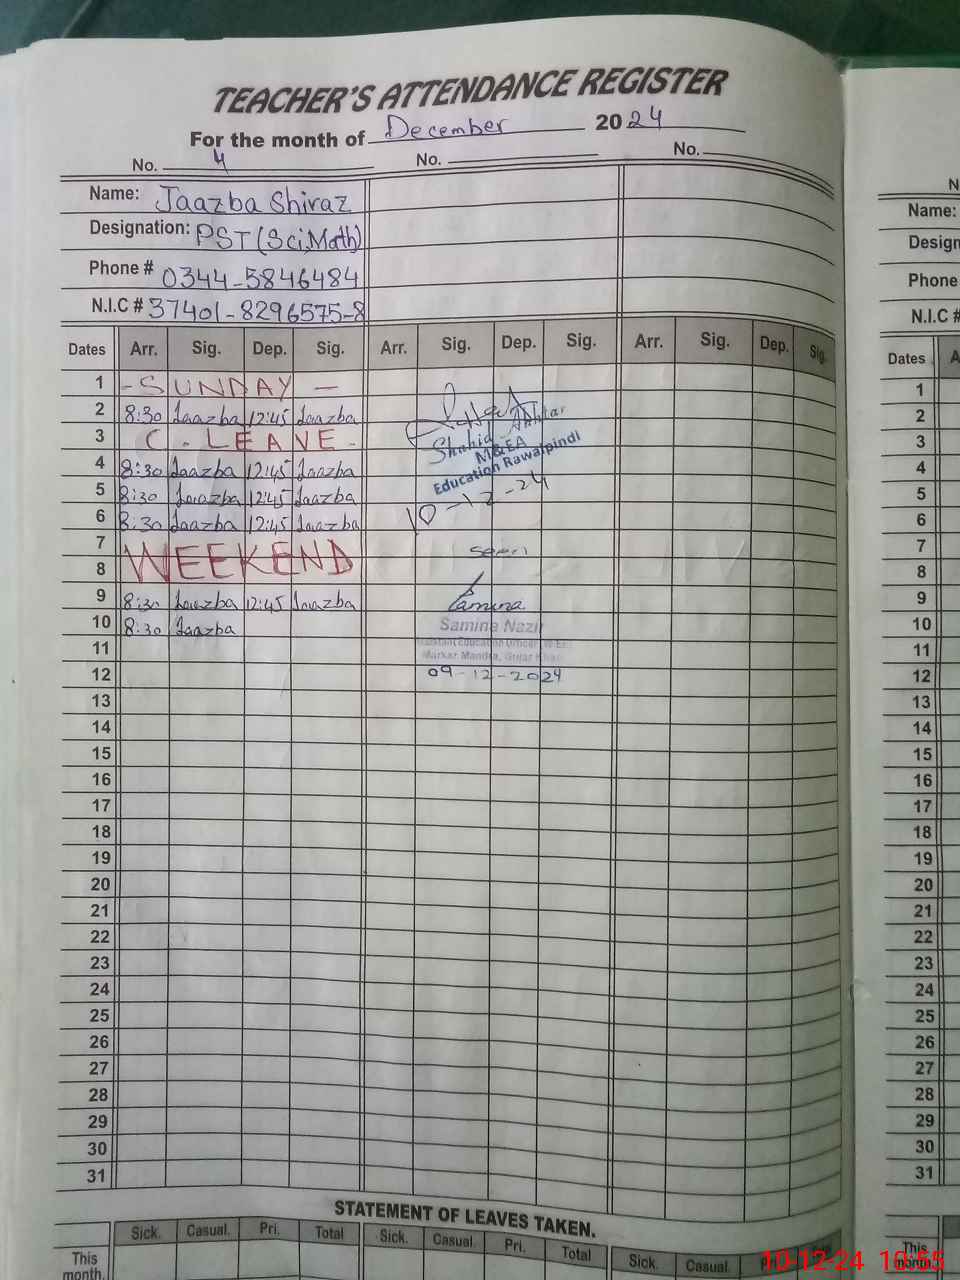 TEACHER'S ATTENDANCE REGISTER
For the month of December 2024
No. 4 No. No.
Name: Jaazba Shiraz
Designation: PST (Sci, Math)
Phone # 0344-5846484
N.I.C # 37401-8296575-8
Dates Arr. Sig. Dep. Sig. Arr. Sig. Dep. Sig. Arr. Sig. Dep. Sig.
1 - SUNDAY -
2 8:30 Jaazba 12:45 Jaazba
3 C. LEAVE -
4 8:30 Jaazba 12:45 Jaazba
5 8:30 Jaazba 12:45 Jaazba
6 8:30 Jaazba 12:45 Jaazba
7
8 WEEKEND
9 8:30 Jaazba 12:45 Jaazba
10 8:30 Jaazba
11
12
13
14
15
16
17
18
19
20
21
22
23
24
25
26
27
28
29
30
31
Shahid Akhtar
M&EA
Education Rawalpindi
10-12-24
Samina
Samina Nazir
Assistant Education Officer
Markaz Mandra, Gujar Khan
09-12-2024
STATEMENT OF LEAVES TAKEN.
Sick. Casual. Pri. Total Sick. Casual Pri. Total Sick. Casual Pri.
This
month.
N
Name:
Design
Phone
N.I.C #
Dates A
1
2
3
4
5
6
7
8
9
10
11
12
13
14
15
16
17
18
19
20
21
22
23
24
25
26
27
28
29
30
31
This
month
10-12-24 10:55